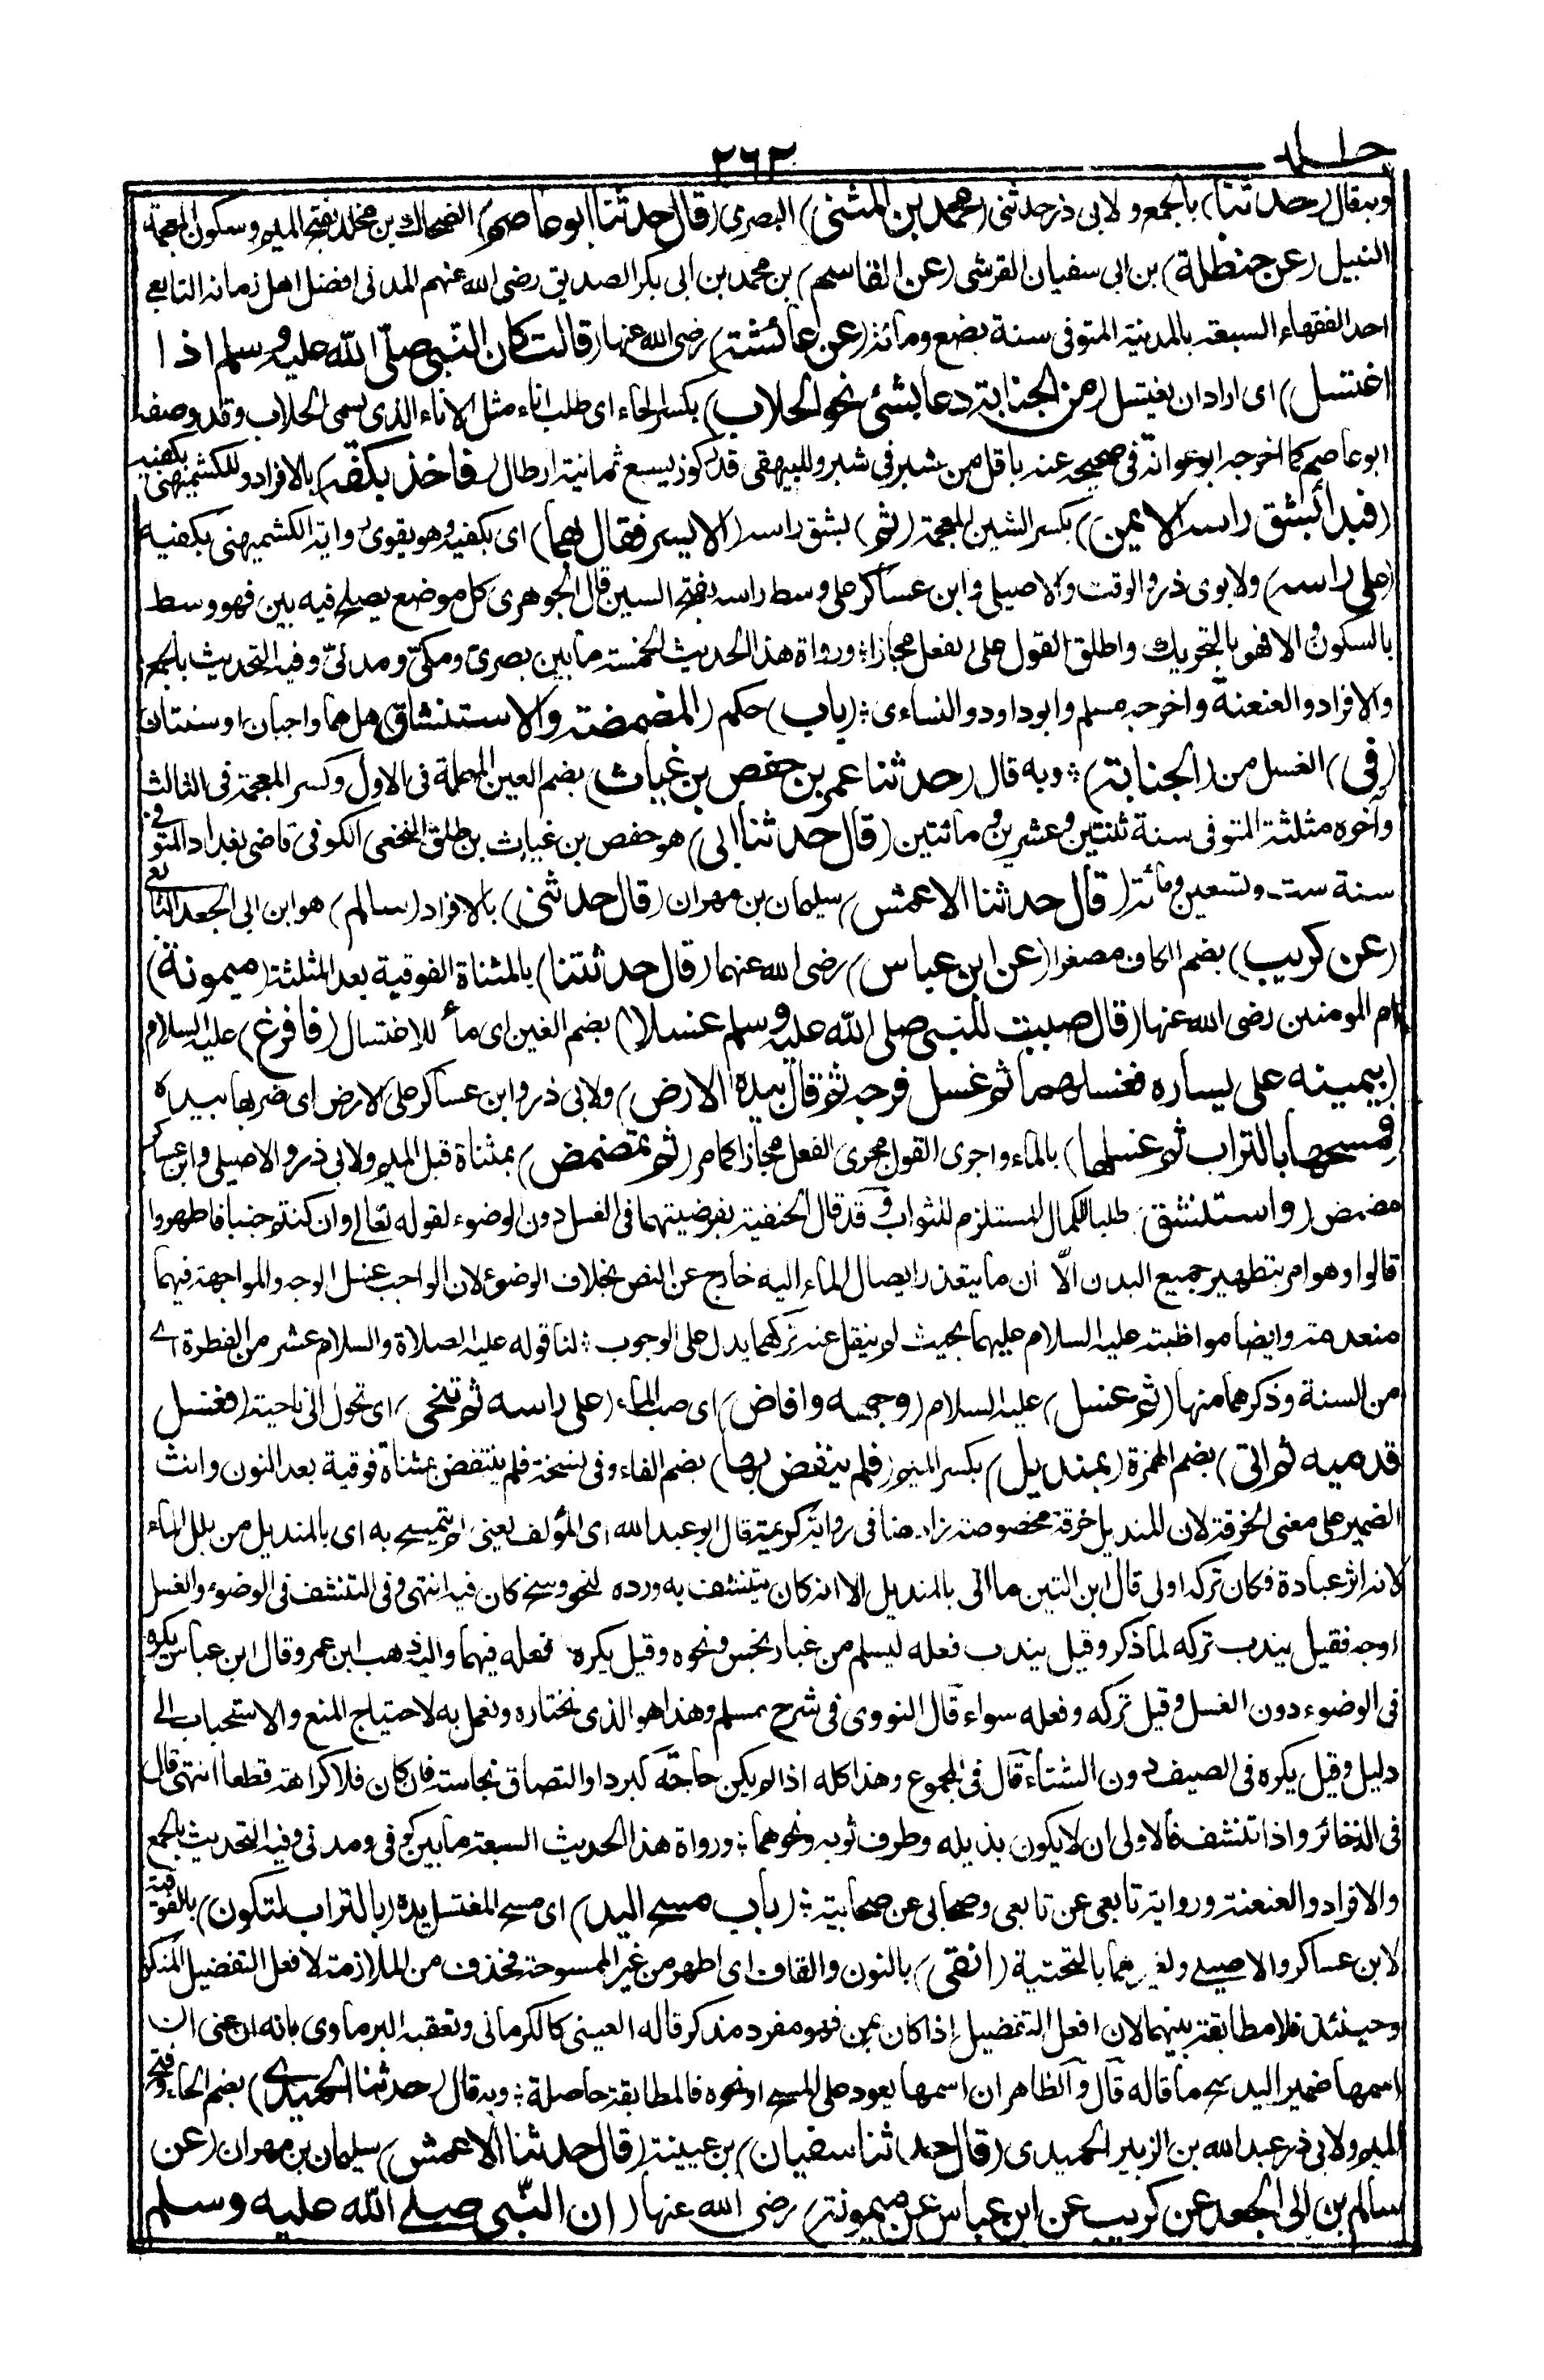 جلد ١
٢٦٢
وبه قال (حدثنا) بالجمع ولابى ذر حدثنى (محمد بن المثنى) البصرى (قال حدثنا ابو عاصم) الضحاك بن مخلد بفتح الميم وسكون المعجمة
النبيل (عن حنظلة) بن ابى سفيان القرشى (عن القاسم) بن محمد بن ابى بكر الصديق رضى الله عنهم المدنى افضل اهل زمانه التابعى
احد الفقهاء السبعة بالمدينة المتوفى سنة بضع ومائة (عن عائشة) رضى الله عنها (قالت كان النبى صلى الله عليه وسلم اذا
اغتسل) اى اراد ان يغتسل (من الجنابة دعا بشئ نحو الحلاب) بكسر الحاء اى طلب اناء مثل الاناء الذى يسمى الحلاب وقد وصفه
ابو عاصم كما اخرجه ابو عوانة فى صحيحه عنه باقل من شبر فى شبر وللبيهقى قدر كوز يسع ثمانية ارطال (فاخذ بكفه) بالافراد وللكشميهنى بكفيه
(فبدأ بشق راسه الايمن) بكسر الشين المعجمة (ثم) بشق راسه (الايسر فقال بهما) اى بكفيه وهو يقوى رواية الكشميهنى بكفيه
(على راسه) ولابوى ذر والوقت والاصيلى وابن عساكر على وسط راسه بفتح السين قال الجوهرى كل موضع يصلح فيه بين فهو وسط
بالسكون والا فهو بالتحريك واطلق القول على الفعل مجازا ۞ ورواة هذا الحديث الخمسة ما بين بصرى ومكى ومدنى وفيه التحديث بالجمع
والافراد والعنعنة واخرجه مسلم وابو داود والنساءى ۞ (باب) حكم (المضمضة والاستنشاق) هل هما واجبان او سنتان
(فى) الغسل من (الجنابة) ۞ وبه قال (حدثنا عمر بن حفص بن غياث) بضم العين المهملة فى الاول وكسر المعجمة فى الثالث
وآخره مثلثة المتوفى سنة ثنتين وعشرين ومائتين (قال حدثنا ابى) هو حفص بن غياث بن طلق النخعى الكوفى قاضى بغداد المتوفى
سنة ست وتسعين ومائة (قال حدثنا الاعمش) سليمان بن مهران (قال حدثنى) بالافراد (سالم) هو ابن ابى الجعد التابعى
(عن كريب) بضم الكاف مصغرا (عن ابن عباس) رضى الله عنهما (قال حدثتنا) بالمثناة الفوقية بعد المثلثة (ميمونة)
ام المومنين رضى الله عنها (قال صببت للنبى صلى الله عليه وسلم غسلا) بضم الغين اى ماء للاغتسال (فافرغ) عليه السلام
(بيمينه على يساره فغسلهما ثم غسل فرجه ثم قال بيده الارض) ولابى ذر وابن عساكر على الارض اى ضربها بيده
(فمسحها بالتراب ثم غسلها) بالماء واجرى القول مجرى الفعل مجازا كما مر (ثم تمضمض) بمثناة قبل الميم ولابى ذر والاصيلى وابن عساكر
مضمض (واستنشق) طلبا للكمال المستلزم للثواب وقد قال الحنفية بفرضيتهما فى الغسل دون الوضوء لقوله تعالى وان كنتم جنبا فاطهروا
قالوا وهو امر بتطهير جميع البدن الّا ان ما يتعذر ايصال الماء اليه خارج عن النص بخلاف الوضوء لان الواجب غسل الوجه والمواجهة فيهما
منعدمة وايضا مواظبته عليه السلام عليهما بحيث لم ينقل عنه تركهما يدل على الوجوب ۞ لنا قوله عليه الصلاة والسلام عشر من الفطرة اى
من السنة وذكرهما منها (ثم غسل) عليه السلام (وجهه وافاض) اى صب الماء (على راسه ثم تنحى) اى تحول الى ناحية (فغسل
قدميه ثم اتى) بضم الهمزة (بمنديل) بكسر الميم (فلم ينفض بها) بضم الفاء وفى نسخة فلم ينتفض بمثناة فوقية بعد النون وانث
الضمير على معنى الخرقة لان المنديل خرقة مخصوصة زاد هنا فى رواية كريمة قال ابو عبد الله اى المؤلف يعنى لم يتمسح به اى بالمنديل من بلل الماء
لانه اثر عبادة فكان تركه اولى قال ابن التين ما اتى بالمنديل الا انه كان يتنشف به ورده لنحو وسخ كان فيه انتهى وفى التنشف فى الوضوء والغسل
اوجه فقيل يندب تركه لما ذكر وقيل يندب فعله ليسلم من غبار نجس ونحوه وقيل يكره فعله فيهما واليه ذهب ابن عمر وقال ابن عباس يكره
فى الوضوء دون الغسل وقيل تركه وفعله سواء قال النووى فى شرح مسلم وهذا هو الذى نختاره ونعمل به لاحتياج المنع والاستحباب الى
دليل وقيل يكره فى الصيف دون الشتاء قال فى المجموع وهذا كله اذا لم يكن حاجة كبرد او التصاق نجاسة فان كان فلا كراهة قطعا انتهى قال
فى الذخائر واذا تنشف فالاولى ان لا يكون بذيله وطرف ثوبه ونحوهما ۞ ورواة هذا الحديث السبعة ما بين كوفى ومدنى وفيه التحديث بالجمع
والافراد والعنعنة ورواية تابعى عن تابعى وصحابى عن صحابية ۞ (باب مسح اليد) اى مسح المغتسل يده (بالتراب لتكون) بالفوقية
لابن عساكر والاصيلى ولغيرهما بالتحتية (انقى) بالنون والقاف اى اطهر من غير الممسوحة فحذف من الملازمة لافعل التفضيل المنكر
وحينئذ فلا مطابقة بينهما لان افعل التفضيل اذا كان بمن فهو مفرد مذكر قاله العينى كالكرمانى وتعقبه البرماوى بانه ان عنى ان
اسمها ضمير اليد صح ما قاله قال والظاهر ان اسمها يعود على المسح او نحوه فالمطابقة حاصلة ۞ وبه قال (حدثنا الحميدى) بضم الحاء وفتح
الميم ولابى ذر عبد الله بن الزبير الحميدى (قال حدثنا سفيان) بن عيينة (قال حدثنا الاعمش) سليمان بن مهران (عن
سالم بن ابى الجعد عن كريب عن ابن عباس عن ميمونة) رضى الله عنها (ان النبى صلى الله عليه وسلم